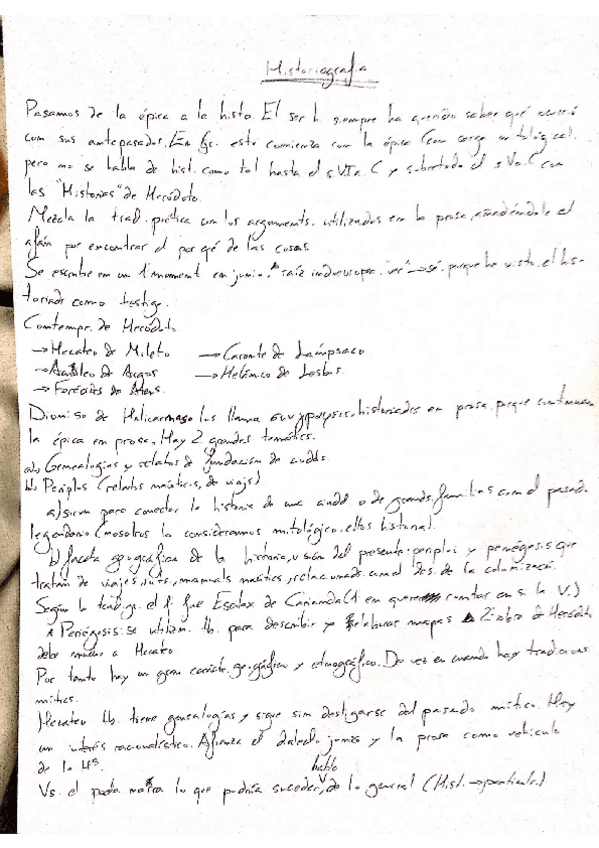 Historiografía
Pasamos de la épica a la histo. El ser h. siempre ha querido saber qué ocurrió
con sus antepasados. En Gr. esto comienza con la épica (con carga mitológica).
pero no se habla de hist. como tal hasta el s VI a. C y sobretodo el s V a. C con
las "Historias" de Heródoto.
Mezcla la trad. poética con los argumento. utilizados en la prosa, añadiéndole el
afán por encontrar el por qé de las cosas.
Se escribe en un 1º moment en jonio. raíz indoeurope. "ver" → sé, porque he visto. el his-
toriador como testigo.
Contempr. de Heródoto
→ Hecateo de Mileto → Caronte de Lámpsaco
→ Acusileo de Argos → Helánico de Lesbos
→ Ferécides de Atenas
Dioniso de Halicarnaso los llama historiades en prosa. porque continuan
la épica en prosa. Hay 2 grandes temátics.
a) Genealogías y relatos de fundación de ciudds.
b) Periplos (relatos maíticos, de viajes)
a) sirven para conectar la historia de una ciudd o de grands. familias con el pasado
legendario (nosotros lo consideramos mitológico, ellos historia).
b) faceta geográfica de la historia, visión del presente: periploi y periégesis que
tratan de viajes, manuals relacionads con el des. de la colonizació.
Según la el 1º fue Escílax de Carianda en s. la V.)
* Periégesis: se utilizan tb. para describir y elaborar mapas 2 libro de Heródoto
debe mucho a Hecateo
Por tanto hay un gran carácte. geográfico y etnográfico. De vez en cuando hay tradicions
mítics.
Hecateo tb. tiene genealogías y sigue sin desligarse del pasado mítico. Hay
un interés racionalístico. Afianza el dialecto jonio y la prosa como vehículo
de la Hª.
Vs. el poeta narra lo que podría suceder, habla de lo general (Hist. → particular)